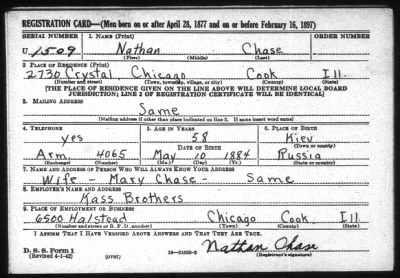 REGISTRATION CARD—(Men born on or after April 28, 1877 and on or before February 16, 1897)
SERIAL NUMBER 1. NAME (Print) ORDER NUMBER
U 1509 Nathan Chase
(First) (Middle) (Last)
2. PLACE OF RESIDENCE (Print)
2730 Crystal, Chicago Cook Ill.
(Number and street) (Town, township, village, or city) (County) (State)
[THE PLACE OF RESIDENCE GIVEN ON THE LINE ABOVE WILL DETERMINE LOCAL BOARD
JURISDICTION; LINE 2 OF REGISTRATION CERTIFICATE WILL BE IDENTICAL]
3. MAILING ADDRESS
Same
[Mailing address if other than place indicated on line 2. If same insert word same]
4. TELEPHONE 5. AGE IN YEARS 6. PLACE OF BIRTH
yes 58 Kiev
DATE OF BIRTH (Town or county)
Arm. 4065 May 10 1884 Russia
(Exchange) (Number) (Mo.) (Day) (Yr.) (State or country)
7. NAME AND ADDRESS OF PERSON WHO WILL ALWAYS KNOW YOUR ADDRESS
Wife - Mary Chase - Same
8. EMPLOYER'S NAME AND ADDRESS
Kass Brothers
9. PLACE OF EMPLOYMENT OR BUSINESS
6500 Halstead Chicago Cook Ill
(Number and street or R. F. D. number) (Town) (County) (State)
I AFFIRM THAT I HAVE VERIFIED ABOVE ANSWERS AND THAT THEY ARE TRUE.
D. S. S. Form 1
(Revised 4-1-42) Nathan Chase
(Registrant's signature)